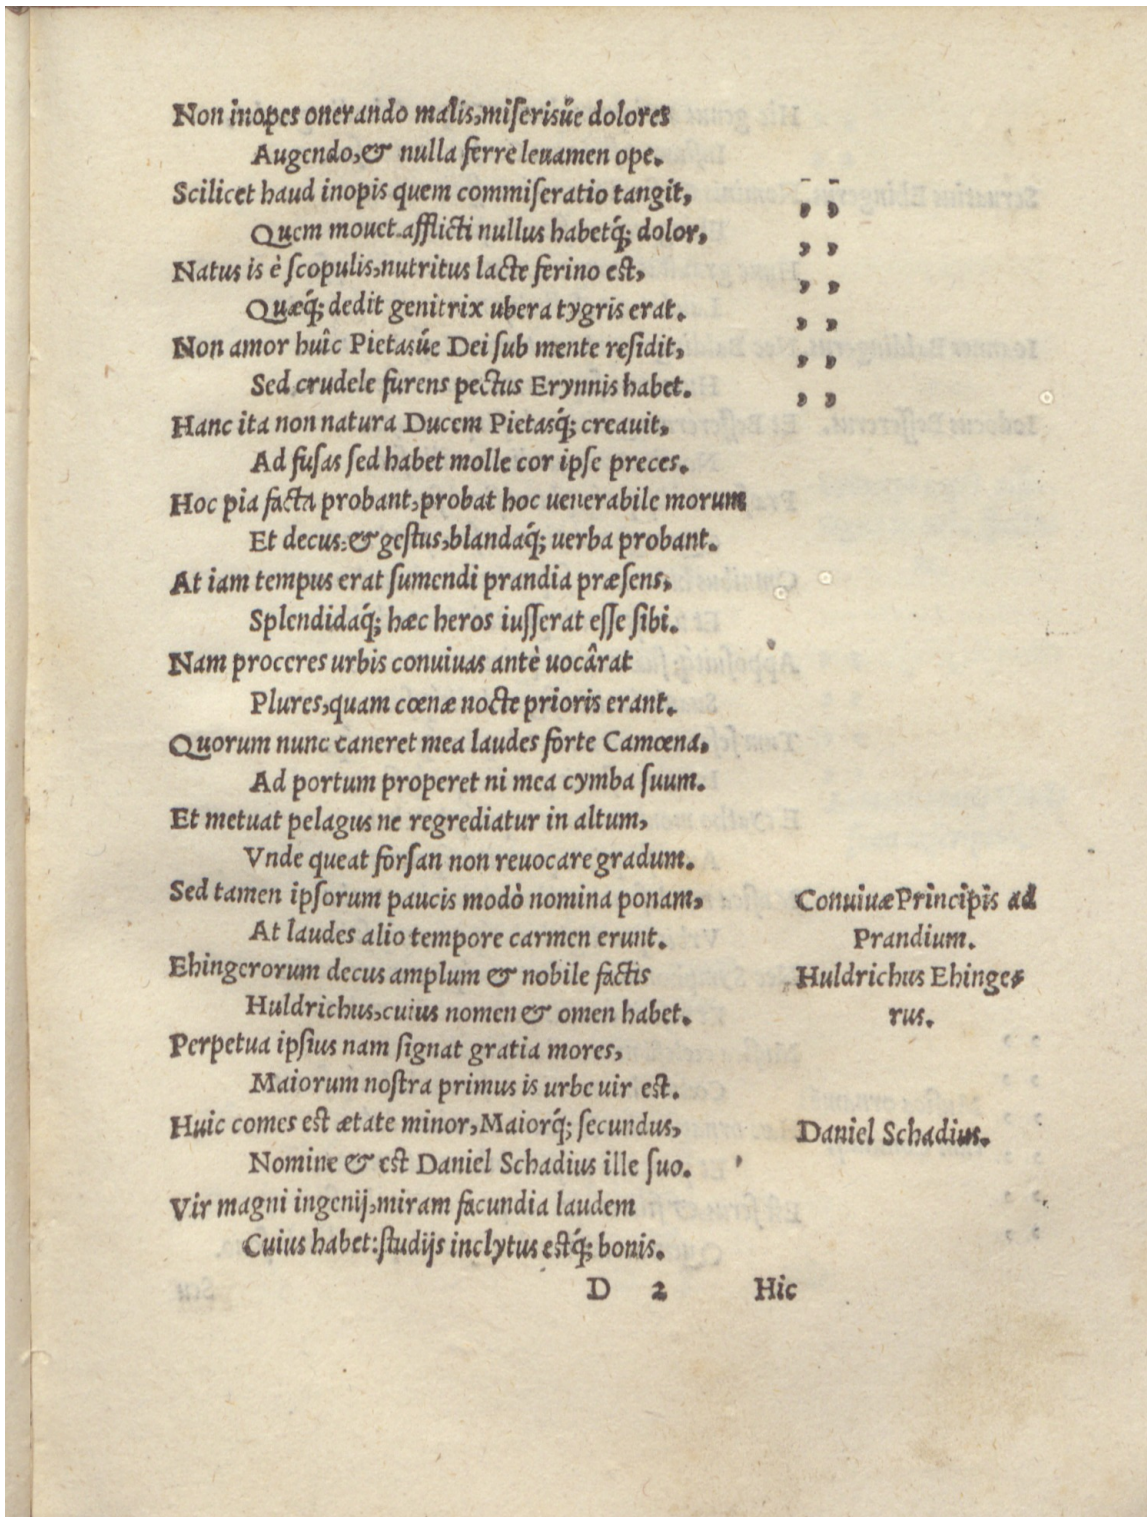 Non inopes onerando malis, miſerisúe dolores
Augendo, & nulla ferre leuamen ope.
Scilicet haud inopis quem commiſeratio tangit,
Quem mouet afflicti nullus habetq́; dolor,
Natus is è ſcopulis, nutritus lacte ferino est,
Quæq́; dedit genitrix ubera tygris erat.
Non amor huic Pietasúe Dei ſub mente reſidit,
Sed crudele furens pectus Erynnis habet.
Hanc ita non natura Ducem Pietasq́; creauit,
Ad fuſas ſed habet molle cor ipſe preces.
Hoc pia facta probant, probat hoc uenerabile morum
Et decus: & geſtus, blandaq́; uerba probant.
At iam tempus erat ſumendi prandia præſens,
Splendidaq́; hæc heros iuſſerat eſſe ſibi.
Nam proceres urbis conuiuas antè uocârat
Plures, quam cœnæ nocte prioris erant.
Quorum nunc caneret mea laudes forte Camœna,
Ad portum properet ni mea cymba ſuum.
Et metuat pelagus ne regrediatur in altum,
Vnde queat forſan non reuocare gradum.
Sed tamen ipſorum paucis modò nomina ponam,
Conuiuæ Principis ad
At laudes alio tempore carmen erunt.
Prandium.
Ehingerorum decus amplum & nobile factis
Huldrichus Ehinge-
Huldrichus, cuius nomen & omen habet.
rus.
Perpetua ipſius nam ſignat gratia mores,
Maiorum noſtra primus is urbe uir est.
Huic comes est ætate minor, Maiorq́; ſecundus,
Daniel Schadius.
Nomine & est Daniel Schadius ille ſuo.
Vir magni ingenij, miram facundia laudem
Cuius habet: ſtudijs inclytus estq́; bonis.
D 2 Hic